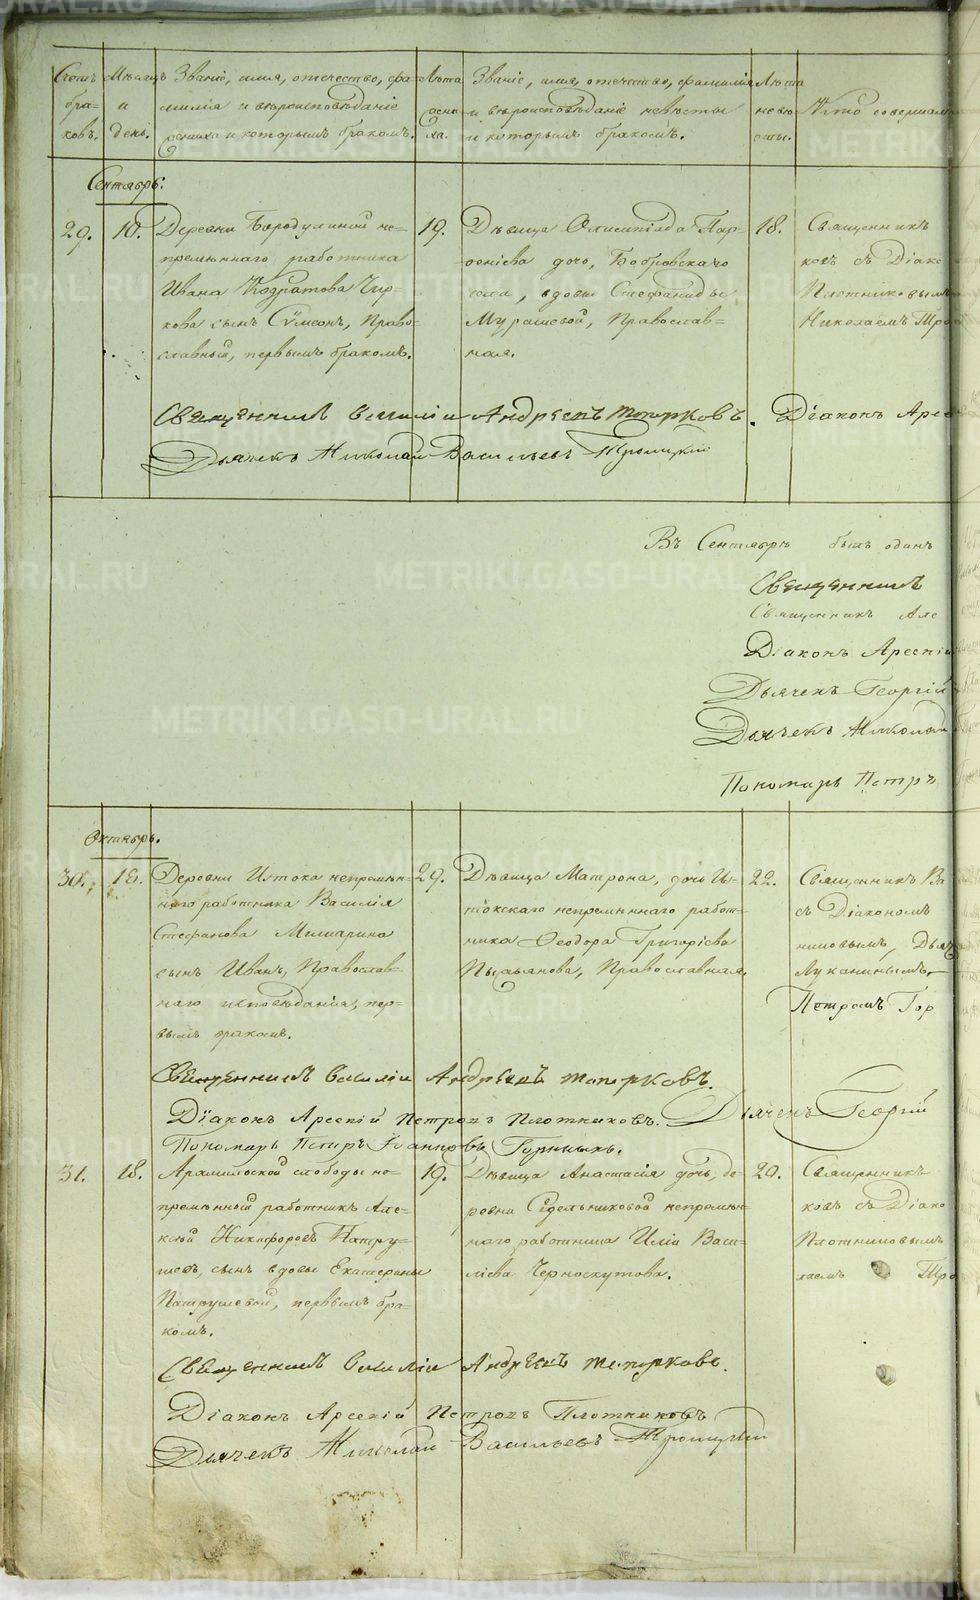 Счетъ бра- ковъ.
Мѣсяцъ и день.
Званіе, имя, отечество, фа-
милія и вѣроисповѣданіе
жениха и которымъ бракомъ.
Лѣта жени- ха.
Званіе, имя, отечество, фамилія
и вѣроисповѣданіе невѣсты
и которымъ бракомъ.
Лѣта невѣ- сты.
Кто совершал
Сентябрь.
29. 10.
Деревни Бородулиной не-
премѣннаго работника
Ивана Кодратова Чир-
кова сынъ Сѵмеонъ, Право-
славный, первымъ бракомъ.
19.
Дѣвица Олимпіада Пар-
фенiева дочь, Бобровскаго
села, вдовы Стефаниды
Мурашевой, Православ-
ная.
18.
Священникъ
ковъ съ Діако
Плотниковымъ
Николаемъ Тро
Священникъ Василій Андреевъ Топорковъ. Діаконъ Арсе
Дьячекъ Николай Васильевъ Троицкій
Въ Сентябрѣ былъ одинъ
Священникъ
Священникъ Але
Діаконъ Арсеній
Дьячекъ Георгій
Дьячекъ Николай
Пономарь Петръ
Октябрь.
30. 18.
Деревни Истока непремѣн-
наго работника Василія
Стефанова Милларина
сынъ Иванъ, Православ-
наго исповѣданія, пер-
вымъ бракомъ.
29.
Дѣвица Матрона, дочь Ис-
токскаго непремѣннаго работ-
ника Ѳеодора Григорiева
Православная,
22.
Священникъ Ва
съ Діакономъ
никовымъ, Дьяч
Луканинымъ
Петромъ Гор
Священникъ Василій Андреевъ Топорковъ.
Діаконъ Арсеній Петровъ Плотниковъ. Дьячекъ Георгій
Пономарь Петръ Іоанновъ Горныхъ.
31. 18.
Арамильской слободы не-
премѣнной работникъ Але-
ксѣй Никифоровъ Патру-
шевъ, сынъ вдовы Екатерины
Патрушевой, первымъ бра-
комъ.
19.
Дѣвица Анастасія дочь, де-
ревни Сѣдельниковой непремѣн-
наго работника Иліи Васи-
лiева Черноскутова.
20.
Священникъ
ковъ съ Діако
Плотниковымъ
лаемъ Тро
Священникъ Василій Андреевъ Топорковъ.
Діаконъ Арсеній Петровъ Плотниковъ
Дьячекъ Николай Васильевъ Троицкій
METRIKI.GASO-URAL.RU